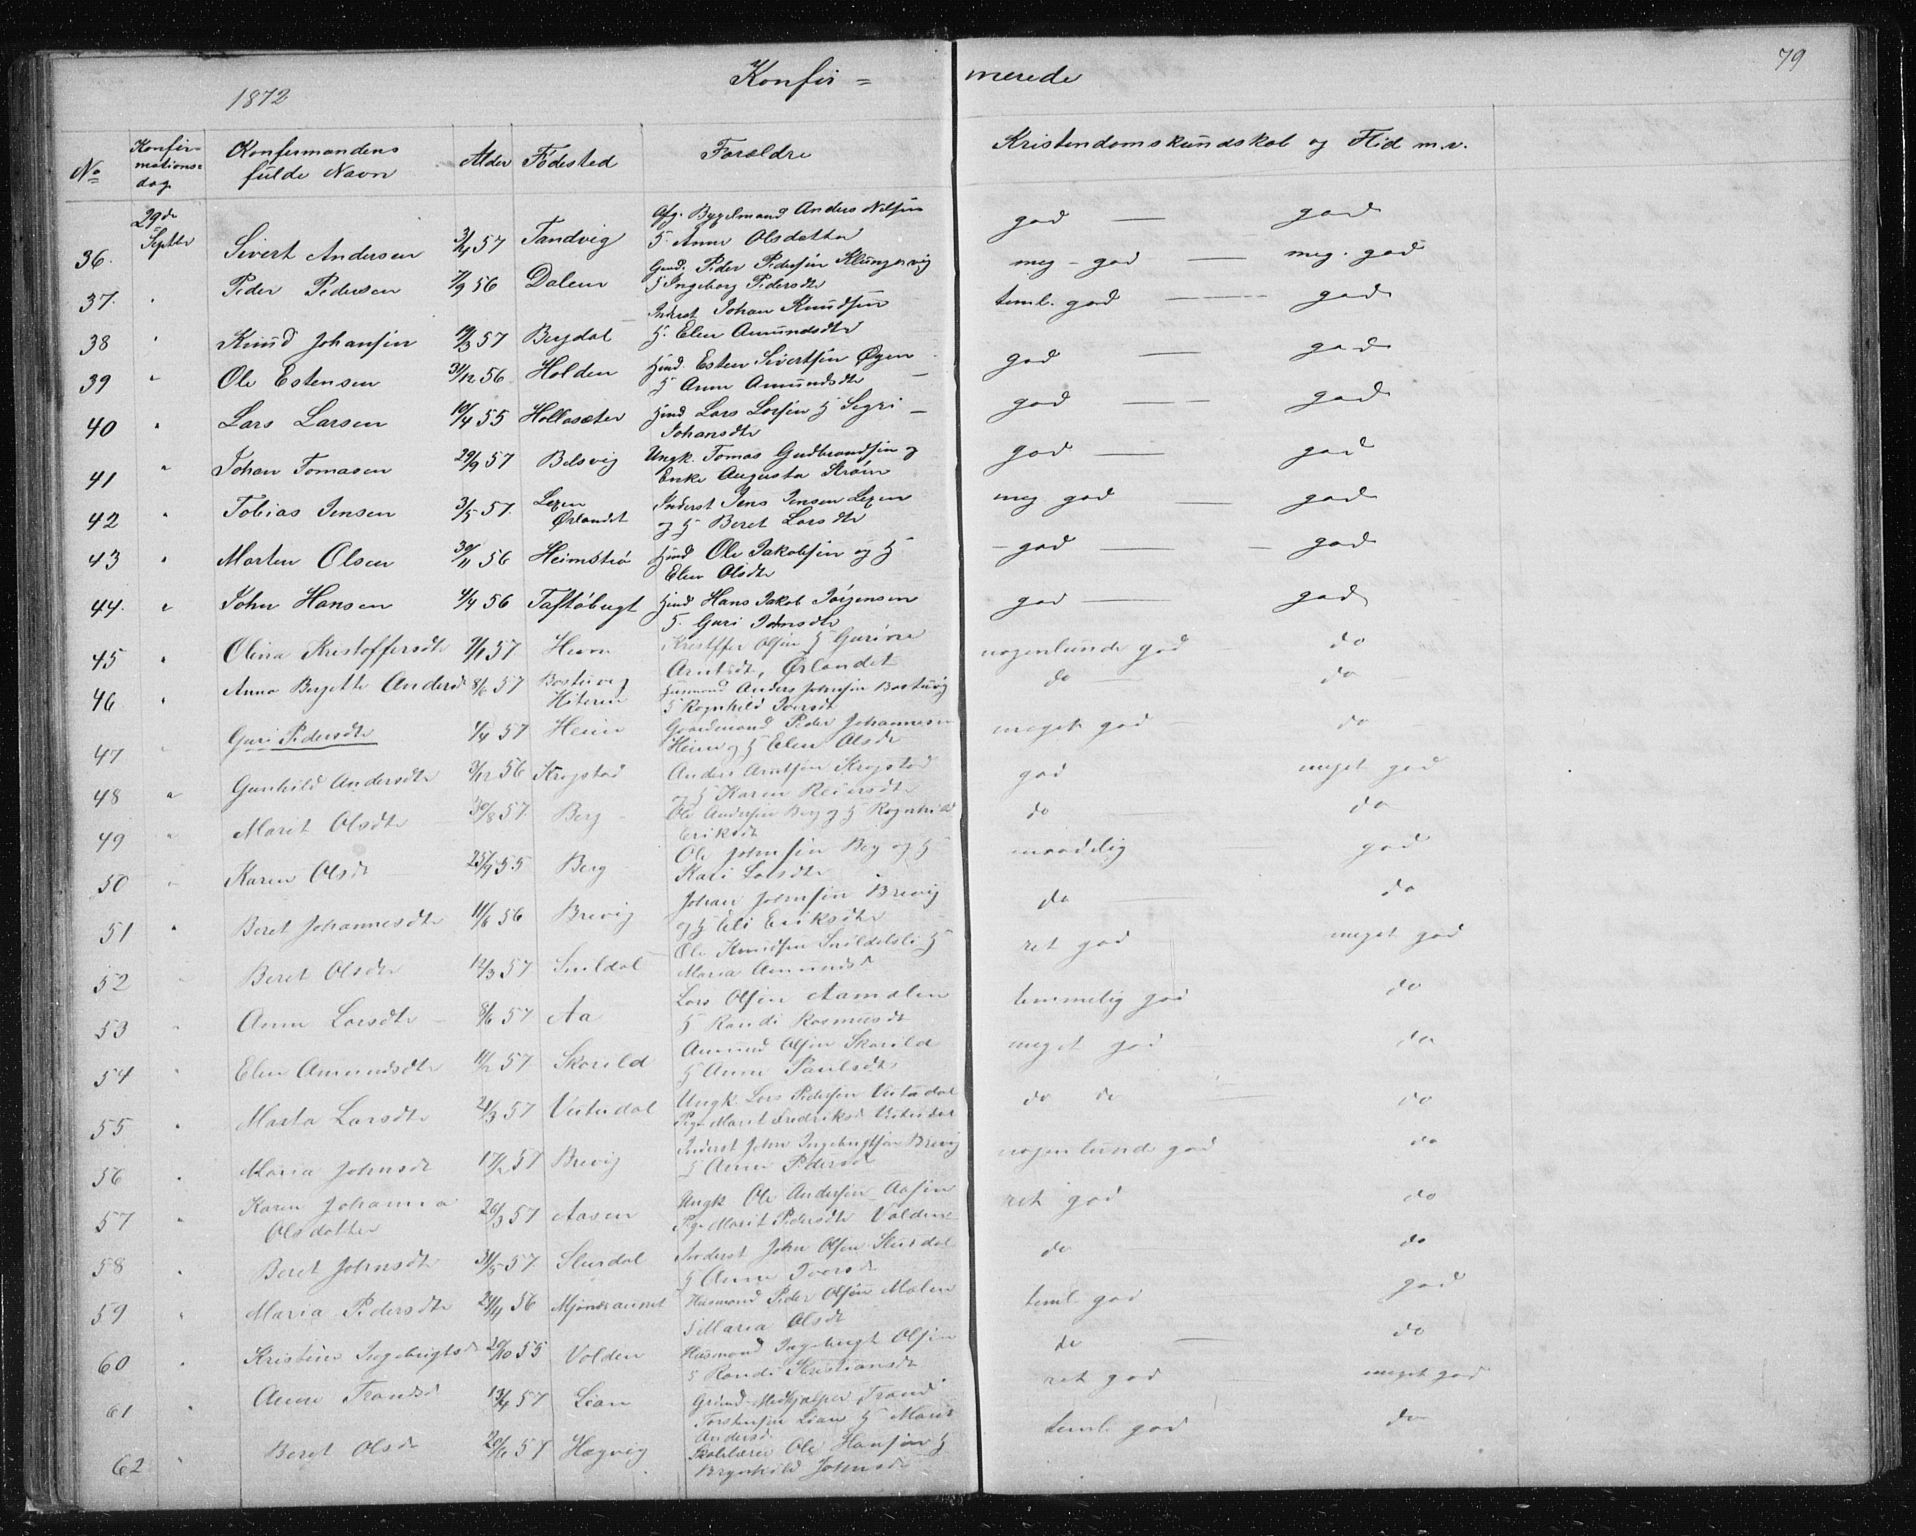 79
1872 Konfir = merede
No Konfir= mations= dag Konfirmandens fulde Navn Alder Fødested Forældre Kristendomskundskab og Flid m.v.
29de Septbr
36. Sivert Andersen 3/4 57 Tandvig Afg. Bygselmand Anders Nilsen H. Anne Olsdatter god — god
37. " Peder Pedersen 7/9 56 Dalem Gmd. Peder Pedersen Klungervig H Ingeborg Pedersdtr meg - god — meg. god
38 " Knud Johansen 19/3 57 Bergdal Inderst Johan Knudsen H. Elen Amundsdtr teml. god — god
39 " Ole Estensen 31/12 56 Holden Hmd. Esten Sivertsen Øyen H Anne Amundsdtr god — god
40 " Lars Larsen 10/4 55 Hollasæter Hmd Lars Larsen H Segri Johansdtr god — god
41 " Johan Tomasen 29/9 57 Belsvig Ungk. Tomas Gudbrandsen og Enke Augusta Strøm god — god
42 " Tobias Jensen 3/5 57. Lexen Ørlandet Inderst Jens Jensen Lexen og H Beret Larsdtr meg god — god
43 " Morten Olsen 30/11 56 Heimstrø Hmd Ole Jakobsen og H Elen Olsdtr god — god
44. " John Hansen 4/4 56 Taftøbugt Hmd Hans Jakob Jørgensen H. Guri Johnsdtr god — god
45 " Olina Kristoffersdtr 7/1 57 Heim Kristoffer Olsen H Gurine Arntsdtr, Ørlandet nogenlunde god do
46 " Anna Bergitte Andersd 8/6 57 Bostuvig Hiteren Husmand Anders Johnsen Bostuvig H Ragnhild Iversdt do do
47 " Guri Pedersdtr 4/4 57 Heim Gaardmand Peder Johannesen Heim og H Elen Olsdtr meget god do
48 " Gunhild Andersdtr 3/12 56 Krogstad Anders Arntsen Krogstad og H Karen Reiersdtr god meget god
49 " Marit Olsdtr 30/8 57. Berg Ole Andersen Berg og H Ragnhild Eriksdt do do
50 " Karen Olsdr 25/9 55 Berg Ole Johnsen Berg og H Kari Larsdtr maadelig god
51 " Beret Johannesdtr 11/6 56 Brevig Johan Johnsen Brevig og H Eli Eriksdtr do do
52 " Beret Olsdtr 12/3 57 Snildal Ole Knudsen Snildalsli H Maria Amundsd ret god meget god
53 " Anne Larsdtr 8/6 57 Aa Lars Olsen Aamølen H Randi Rasmusdt temmelig god do
54 " Elen Amundsdtr 11/2 57 Skarild Amund Olsen Skarild H Anne Paulsdtr meget god do
55 " Marta Larsdtr 21/3 57 Vitudal Ungk Lars Pedersen Vitudal Pige Marit Fredriksd Vitudal do do do
56 " Maria Johnsdt 17/2 57 Brevig Inderst John Ingebrigtsen Brevig H Anne Pedersd nogenlunde god do
57 " Karen Johanna Olsdatter 26/3 57 Aasen Ungk Ole Andersen Aasen Pige Marit Pedersdtr Valdene ret god do
58 " Beret Johnsdtr 31/5 57 Slurdal Inderst John Olsen Slurdal H Anne Iversd do do
59 " Maria Pedersdtr 24/11 56 Mjønesaunet Husmand Peder Olsen Mølen H Maria Olsdt teml. god god
60 " Kristine Ingebrigtsd 20/10 55 Volden Husmand Ingebrigt Olsen H Randi Kristiansdt do — do
61 " Anne Trondsd 13/4 57 Lian Medhjælper Trond Torstensen Lian H Marit Andersd. ret god meget god
62 " Beret Olsdr 20/6 57 Hagvig Skolelærer Ole Hansen H Brynhild Johnsdtr teml. god do